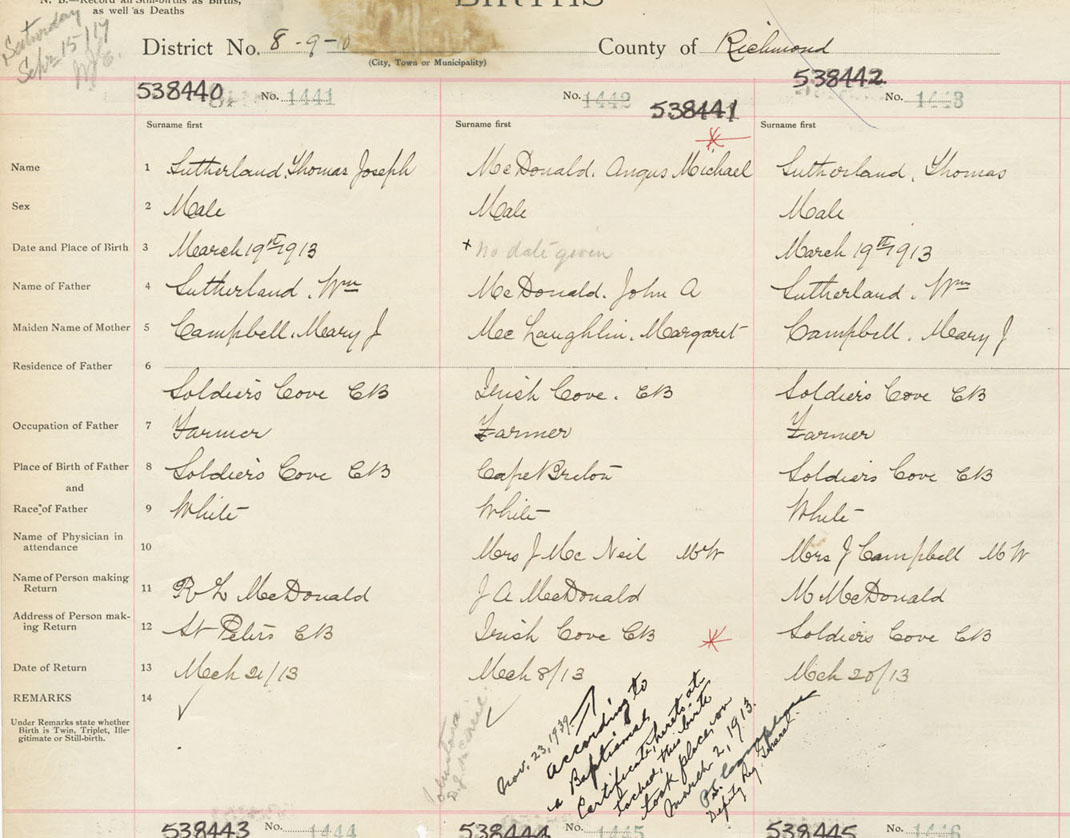 N. B.—Record all Still-births as Births,
as well as Deaths
BIRTHS
Saturday
Sept 15/17
District No. 8-9-10
(City, Town or Municipality)
County of Richmond
538440 No. 1441
No. 1442 538441
538442 No. 1443
Surname first Surname first Surname first
Name 1 Sutherland, Thomas Joseph McDonald. Angus Michael Sutherland, Thomas
Sex 2 Male Male Male
Date and Place of Birth 3 March 19th 1913 x No date given March 19th 1913
Name of Father 4 Sutherland. Wm McDonald. John A Sutherland. Wm
Maiden Name of Mother 5 Campbell. Mary J McLaughlin. Margaret Campbell. Mary J
Residence of Father 6 Soldiers Cove CB Irish Cove. CB Soldiers Cove CB
Occupation of Father 7 Farmer Farmer Farmer
Place of Birth of Father 8 Soldiers Cove CB Cape Breton Soldiers Cove CB
and
Race of Father 9 White White White
Name of Physician in
attendance 10 Mrs J McNeil MW Mrs J Campbell MW
Name of Person making
Return 11 R L McDonald J A McDonald M McDonald
Address of Person mak-
ing Return 12 St Peters CB Irish Cove CB Soldiers Cove CB
Date of Return 13 Mch 21/13 Mch 8/13 Mch 20/13
REMARKS 14
Under Remarks state whether
Birth is Twin, Triplet, Ille-
gitimate or Still-birth.
Nov. 23, 1939.
According to
a Baptismal
Certificate, hereto at
tached, this birth
took place on
March 2, 1913.
Deputy Reg. General.
538443 No. 1444
538444 No. 1445
538445 No. 1446